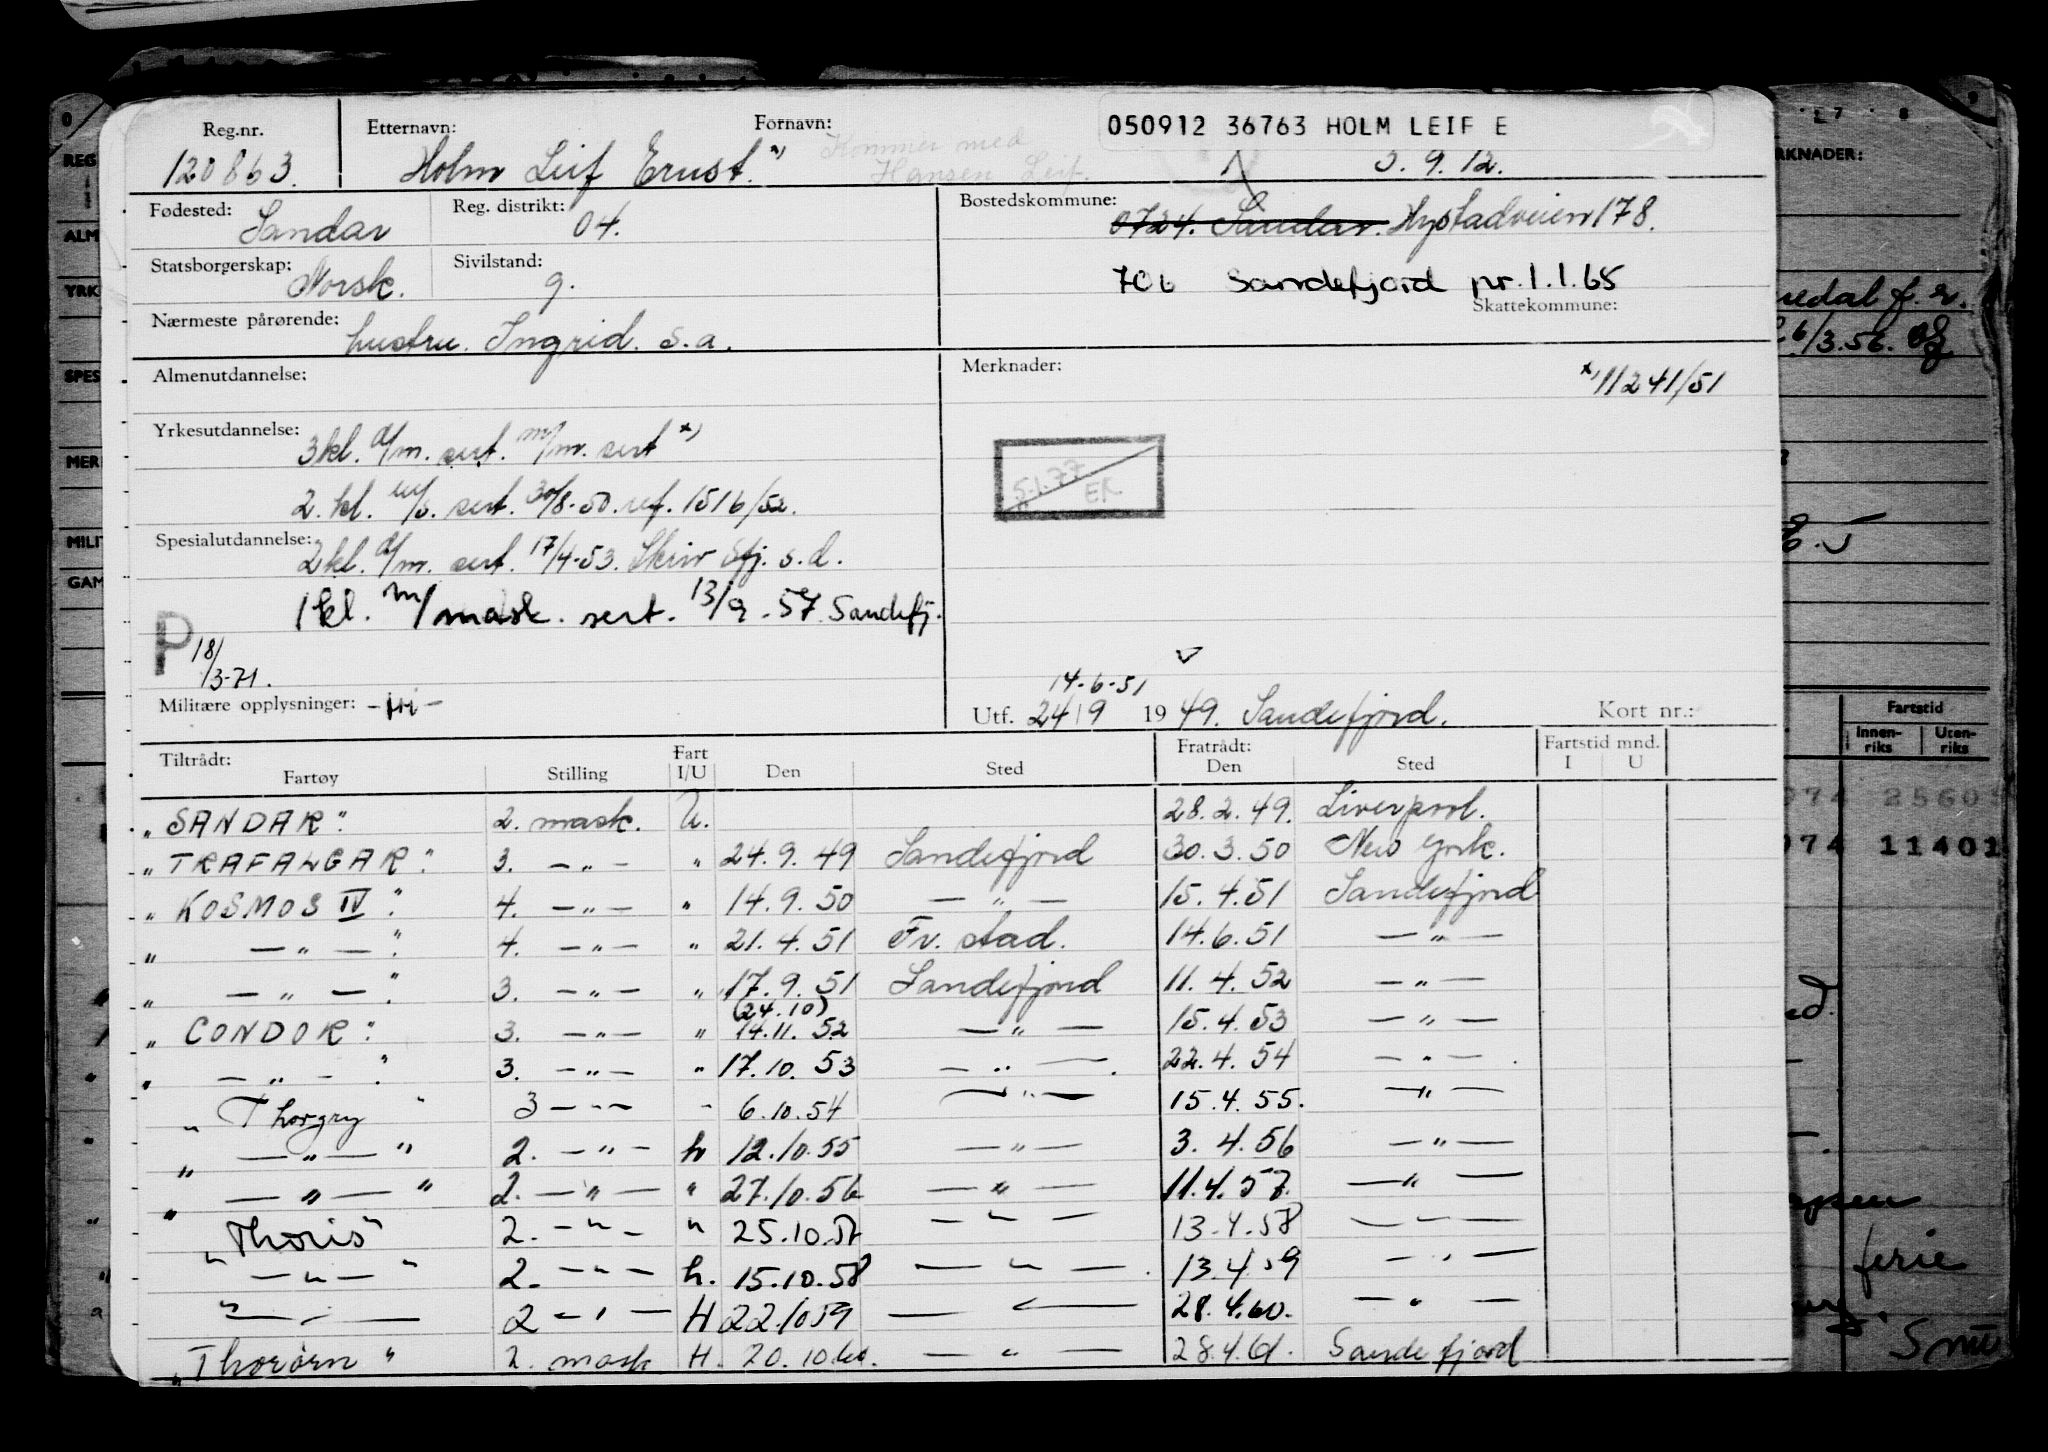 Reg.nr. Etternavn: Fornavn: 050912 36763 HOLM LEIF E
120863. Holm Leif Ernst. x) Kommer med Hansen Leif. 5.9.12.
Fødested: Sandar Reg. distrikt: 04. Bostedskommune: 0724. Sandar. Nystadveien 178.
Statsborgerskap: Norsk. Sivilstand: g. 706 Sandefjord pr. 1.1.65
Skattekommune:
Nærmeste pårørende: hustru. Ingrid. s.a.
Almenutdannelse: Merknader: x) 11241/51
Yrkesutdannelse: 3kl. d/m. sert. m/m. sert x)
5.1.77 EK
2. kl. m/s. sert. 30/8-50. ref. 1516/52.
Spesialutdannelse: 2kl. d/m. sert. 17/4-53. Skriv Sfj. s.d.
1kl. m/mask. sert. 13/9-57 Sandefj.
P 18/3-71.
14-6-51
Militære opplysninger: Utf. 24/9 1949. Sandefjord. Kort nr.:
Tiltrådt: Fart Fratrådt: Fartstid mnd.
Fartøy Stilling I/U Den Sted Den Sted I U
"SANDAR". 2. mask. U. 28.2.49. Liverpool.
"TRAFALGAR". 3. —"— " 24.9.49 Sandefjord 30.3.50 New York.
"KOSMOS IV". 4. —"— " 14.9.50 —"— 15.4.51 Sandefjord
" —"— ". 4. —"— " 21.4.51 Fr. stad. 14.6.51 —"—
" —"— ". 3. —"— " 17.9.51 Sandefjord 11.4.52 —"—
(24.10)
"CONDOR". 3. —"— " 14.11.52 —"— 15.4.53 —"—
" —"— ". 3. —"— " 17.10.53 —"— 22.4.54 —"—
"Thorgry" 3 —"— " 6.10.54 —"— 15.4.55. —"—
" —"— " 2. —"— h 12.10.55 —"— 3.4.56 —"—
" —"— " 2. —"— " 27.10.56 —"— 11.4.57. —"—
"Thoris" 2. —"— " 25.10.57 —"— 13.4.58 —"—
—"— " 2. —"— h. 15.10.58 —"— 13.4.59 —"—
" —"— 2 —"— H 22.10 59 —"— 28.4.60. —"—
"Thorørn" 2. mask H. 20.10.60. —"— 28.4.61. Sandefjord
REG
ALM
YRK
SPES
MER
MILI
GAM
RKNADER:
6/3.56.
Fartstid
Innen-riks Uten-riks
074 25605
074 11401
ferie